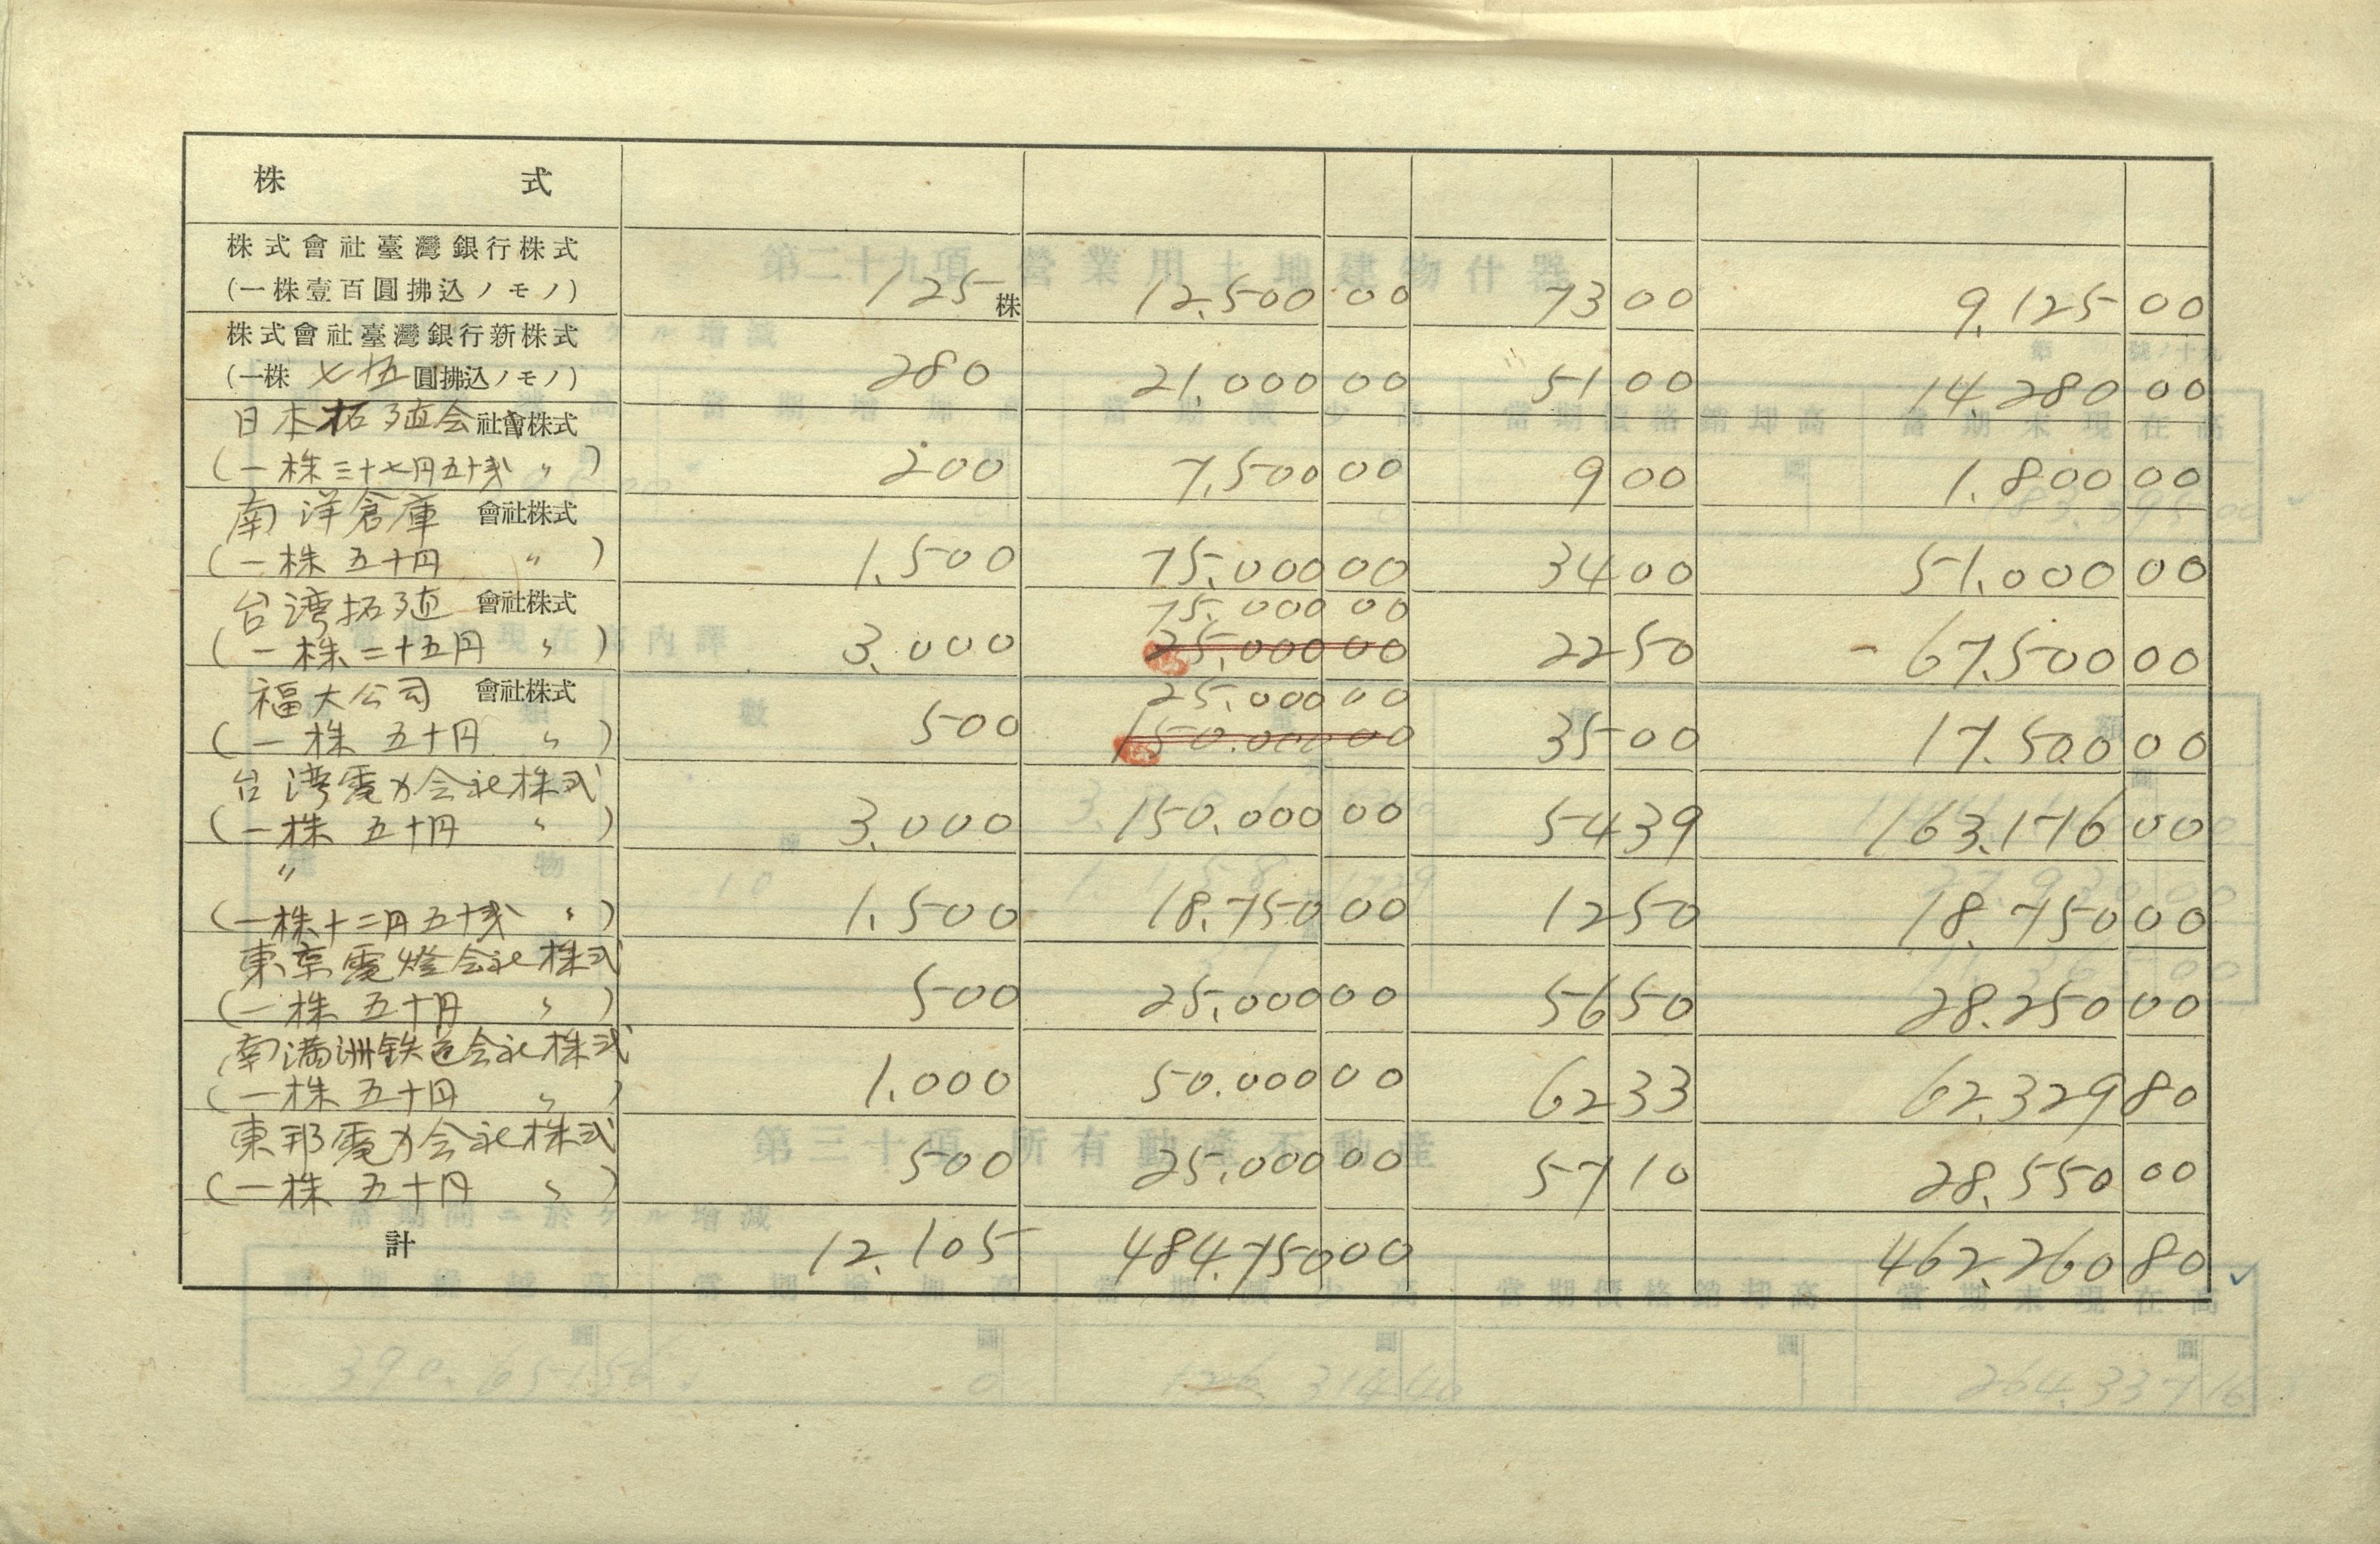 株式
株式會社臺灣銀行株式
(一株壹百圓拂込ノモノ) 125株 12.500 00 73 00 9.125 00
株式會社臺灣銀行新株式
(一株 七五 圓拂込ノモノ) 280 21.000 00 51 00 14.280 00
日本拓殖会社會株式
(一株三十七円五十戋 〃) 200 7.500 00 9 00 1.800 00
南洋倉庫 會社株式
(一株 五十円 〃) 1.500 75.000 00 34 00 51.000 00
台湾拓殖 會社株式 75.000 00
(一株二十五円 〃) 3.000 25.000 00 22 50 67.500 00
福大公司 會社株式 25.000 00
(一株 五十円 〃) 500 150.000 00 35 00 17.500 00
台湾電力会社株式
(一株 五十円 〃) 3.000 150.000 00 54 39 163.176 00
〃
(一株十二円五十戋 〃) 1.500 18.750 00 12 50 18.750 00
東京電燈会社株式
(一株 五十円 〃) 500 25.000 00 56 50 28.250 00
南満洲鉄道会社株式
(一株 五十円 〃) 1.000 50.000 00 62 33 62.329 80
東邦電力会社株式
(一株 五十円 〃) 500 25.000 00 57 10 28.550 00
計 12.105 484.750 00 462.260 80